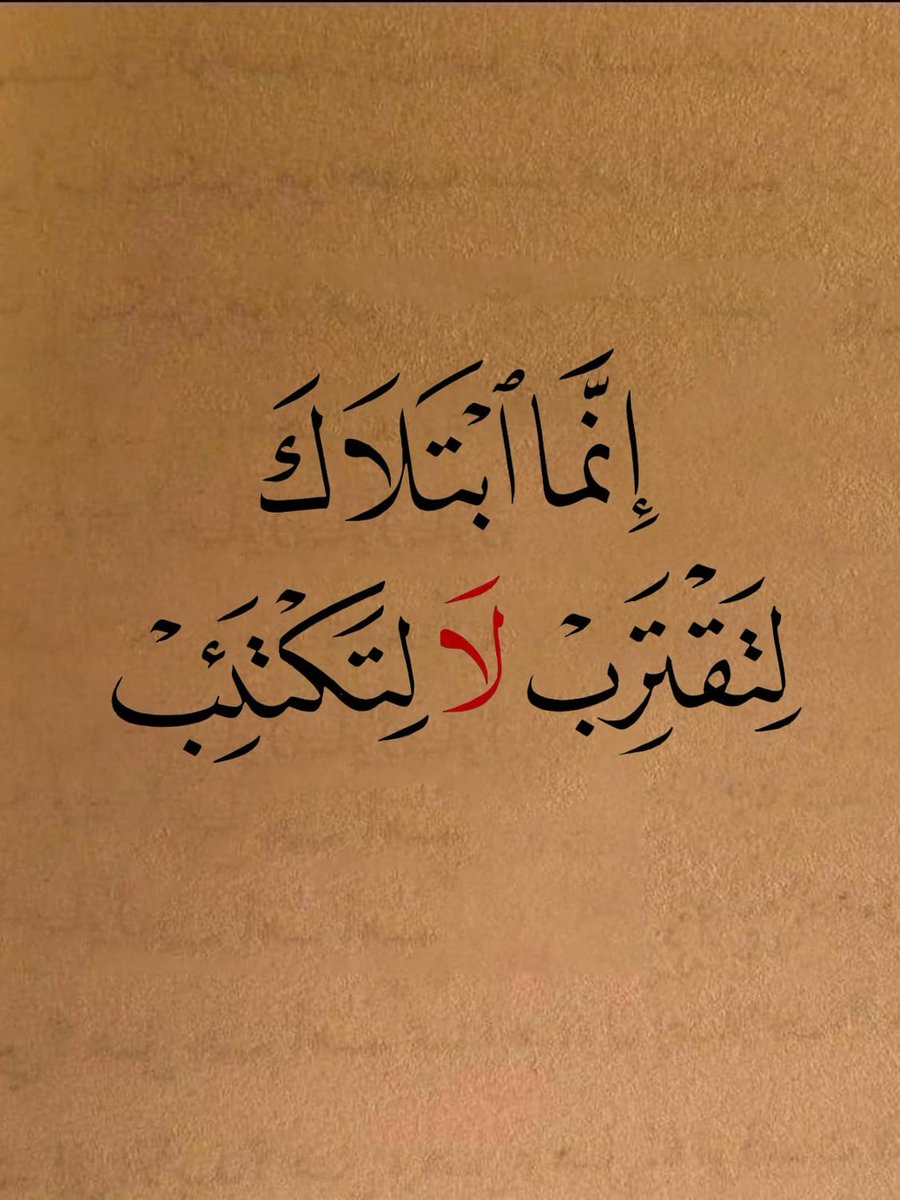 إِنَّمَا ٱبْتَلَاكَ
لِتَقْتَرِبْ لَا لِتَكْتَئِبْ